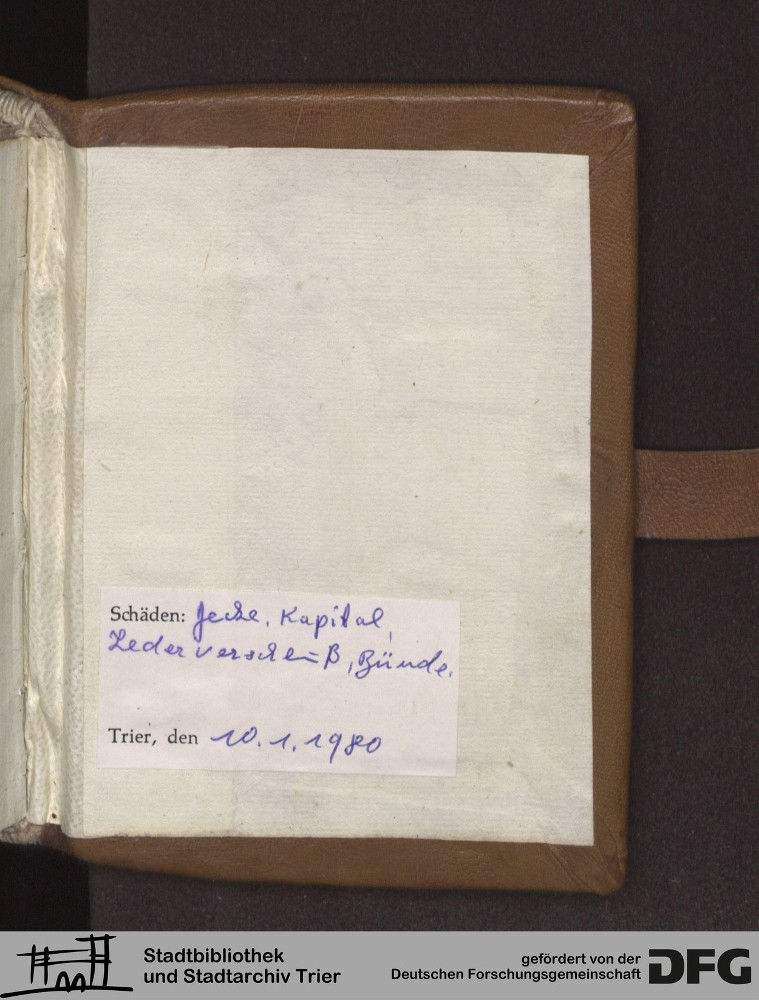 Schäden: Jecke, Kapital,
Lederverschleiß, Bünde.
Trier, den 10.1.1980
Stadtbibliothek
und Stadtarchiv Trier
gefördert von der
Deutschen Forschungsgemeinschaft
DFG